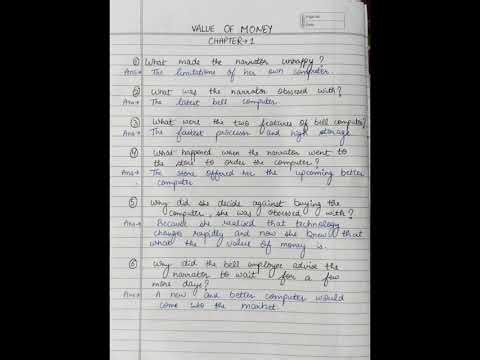 VALUE OF MONEY
CHAPTER→1
① What made the narrator unhappy?
Ans→ The limitations of her own computer.
② What was the narrator obsessed with?
Ans→ The latest bell computer.
③ What were the two features of bell computer?
Ans→ The fastest processor and high storage.
④ What happened when the narrator went to
the store to order the computer?
Ans→ The store offered her the upcoming better
computer
⑤ Why did she decide against buying the
computer, she was obsessed with?
Ans→ Because she realised that technology
changes rapidly and now she knew that
what the value of money is.
⑥ Why did the bell employee advise the
narrator to wait for a few
more days?
Ans→ A new and better computer would
come into the market.